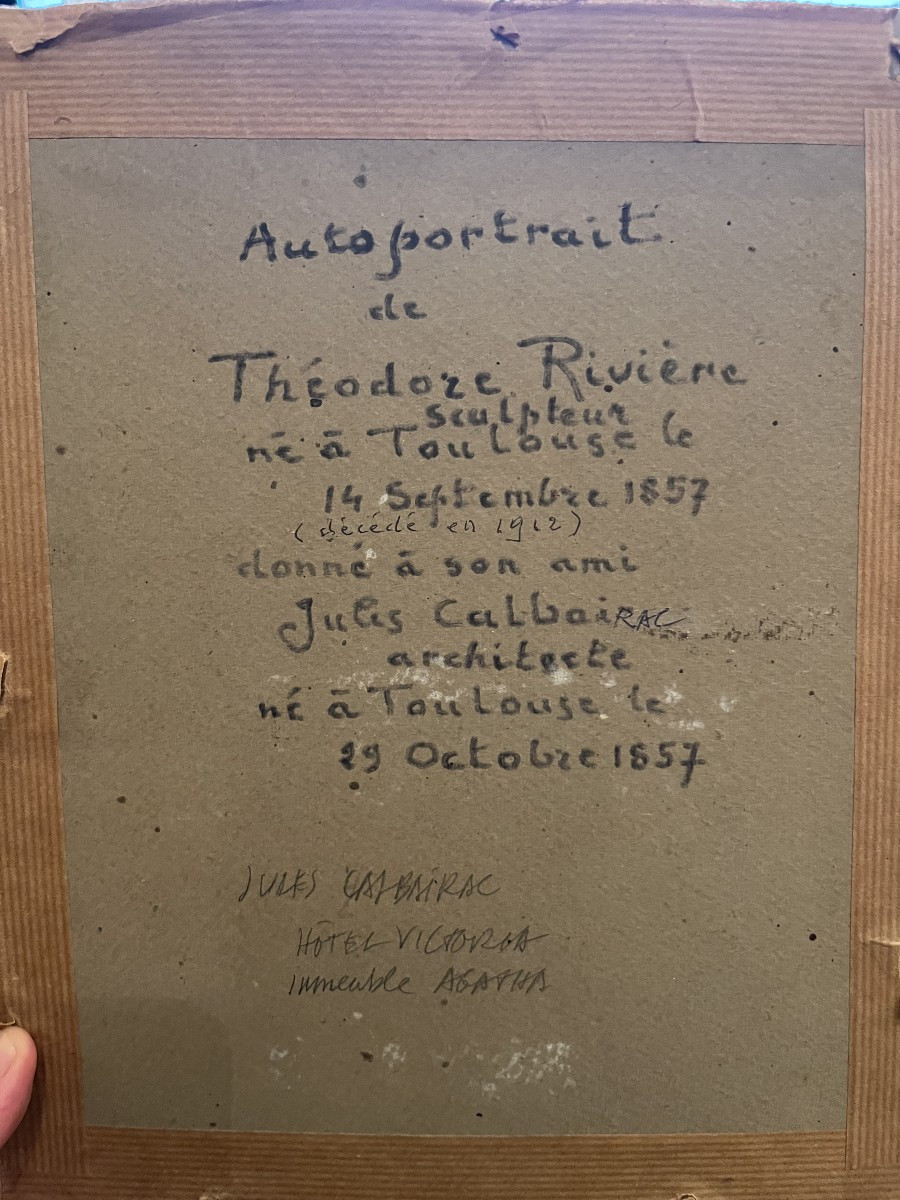 Autoportrait
de
Théodore Rivière
sculpteur
né à Toulouse le
14 Septembre 1857
(décédé en 1912)
donné à son ami
Jules CalbaiRAC
architecte
né à Toulouse le
29 Octobre 1857
JULES CALBAÏRAC
HÔTEL VICTORIA
immeuble AGATHA